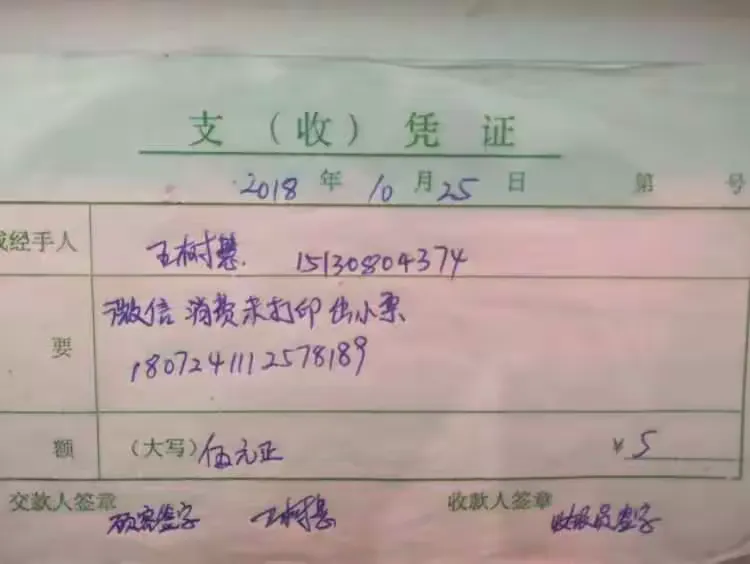 支（收）凭证
2018年10月25日 第 号
或经手人 王树慧 15130804374
要 微信消费未打印出小票
1807241112578189
额 （大写）伍元正 ¥5
交款人签章 收款人签章
顾客签字 王树慧 收银员签字